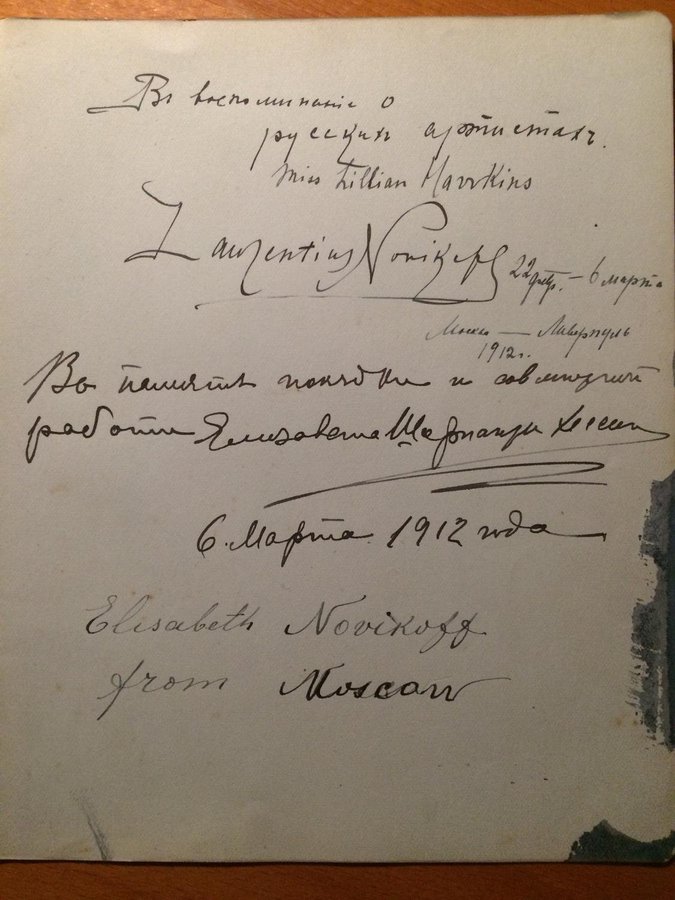 Въ воспоминанiе о
русскихъ артистахъ.
Miss Lillian Hawkins
Laurentius Novikoff 22 февр. – 6 марта
Москва — Ливерпуль
1912 г.
Въ память поѣздки и совмѣстной
работы Елизавета
6. Марта 1912 года
Elisabeth Novikoff
from Moscow